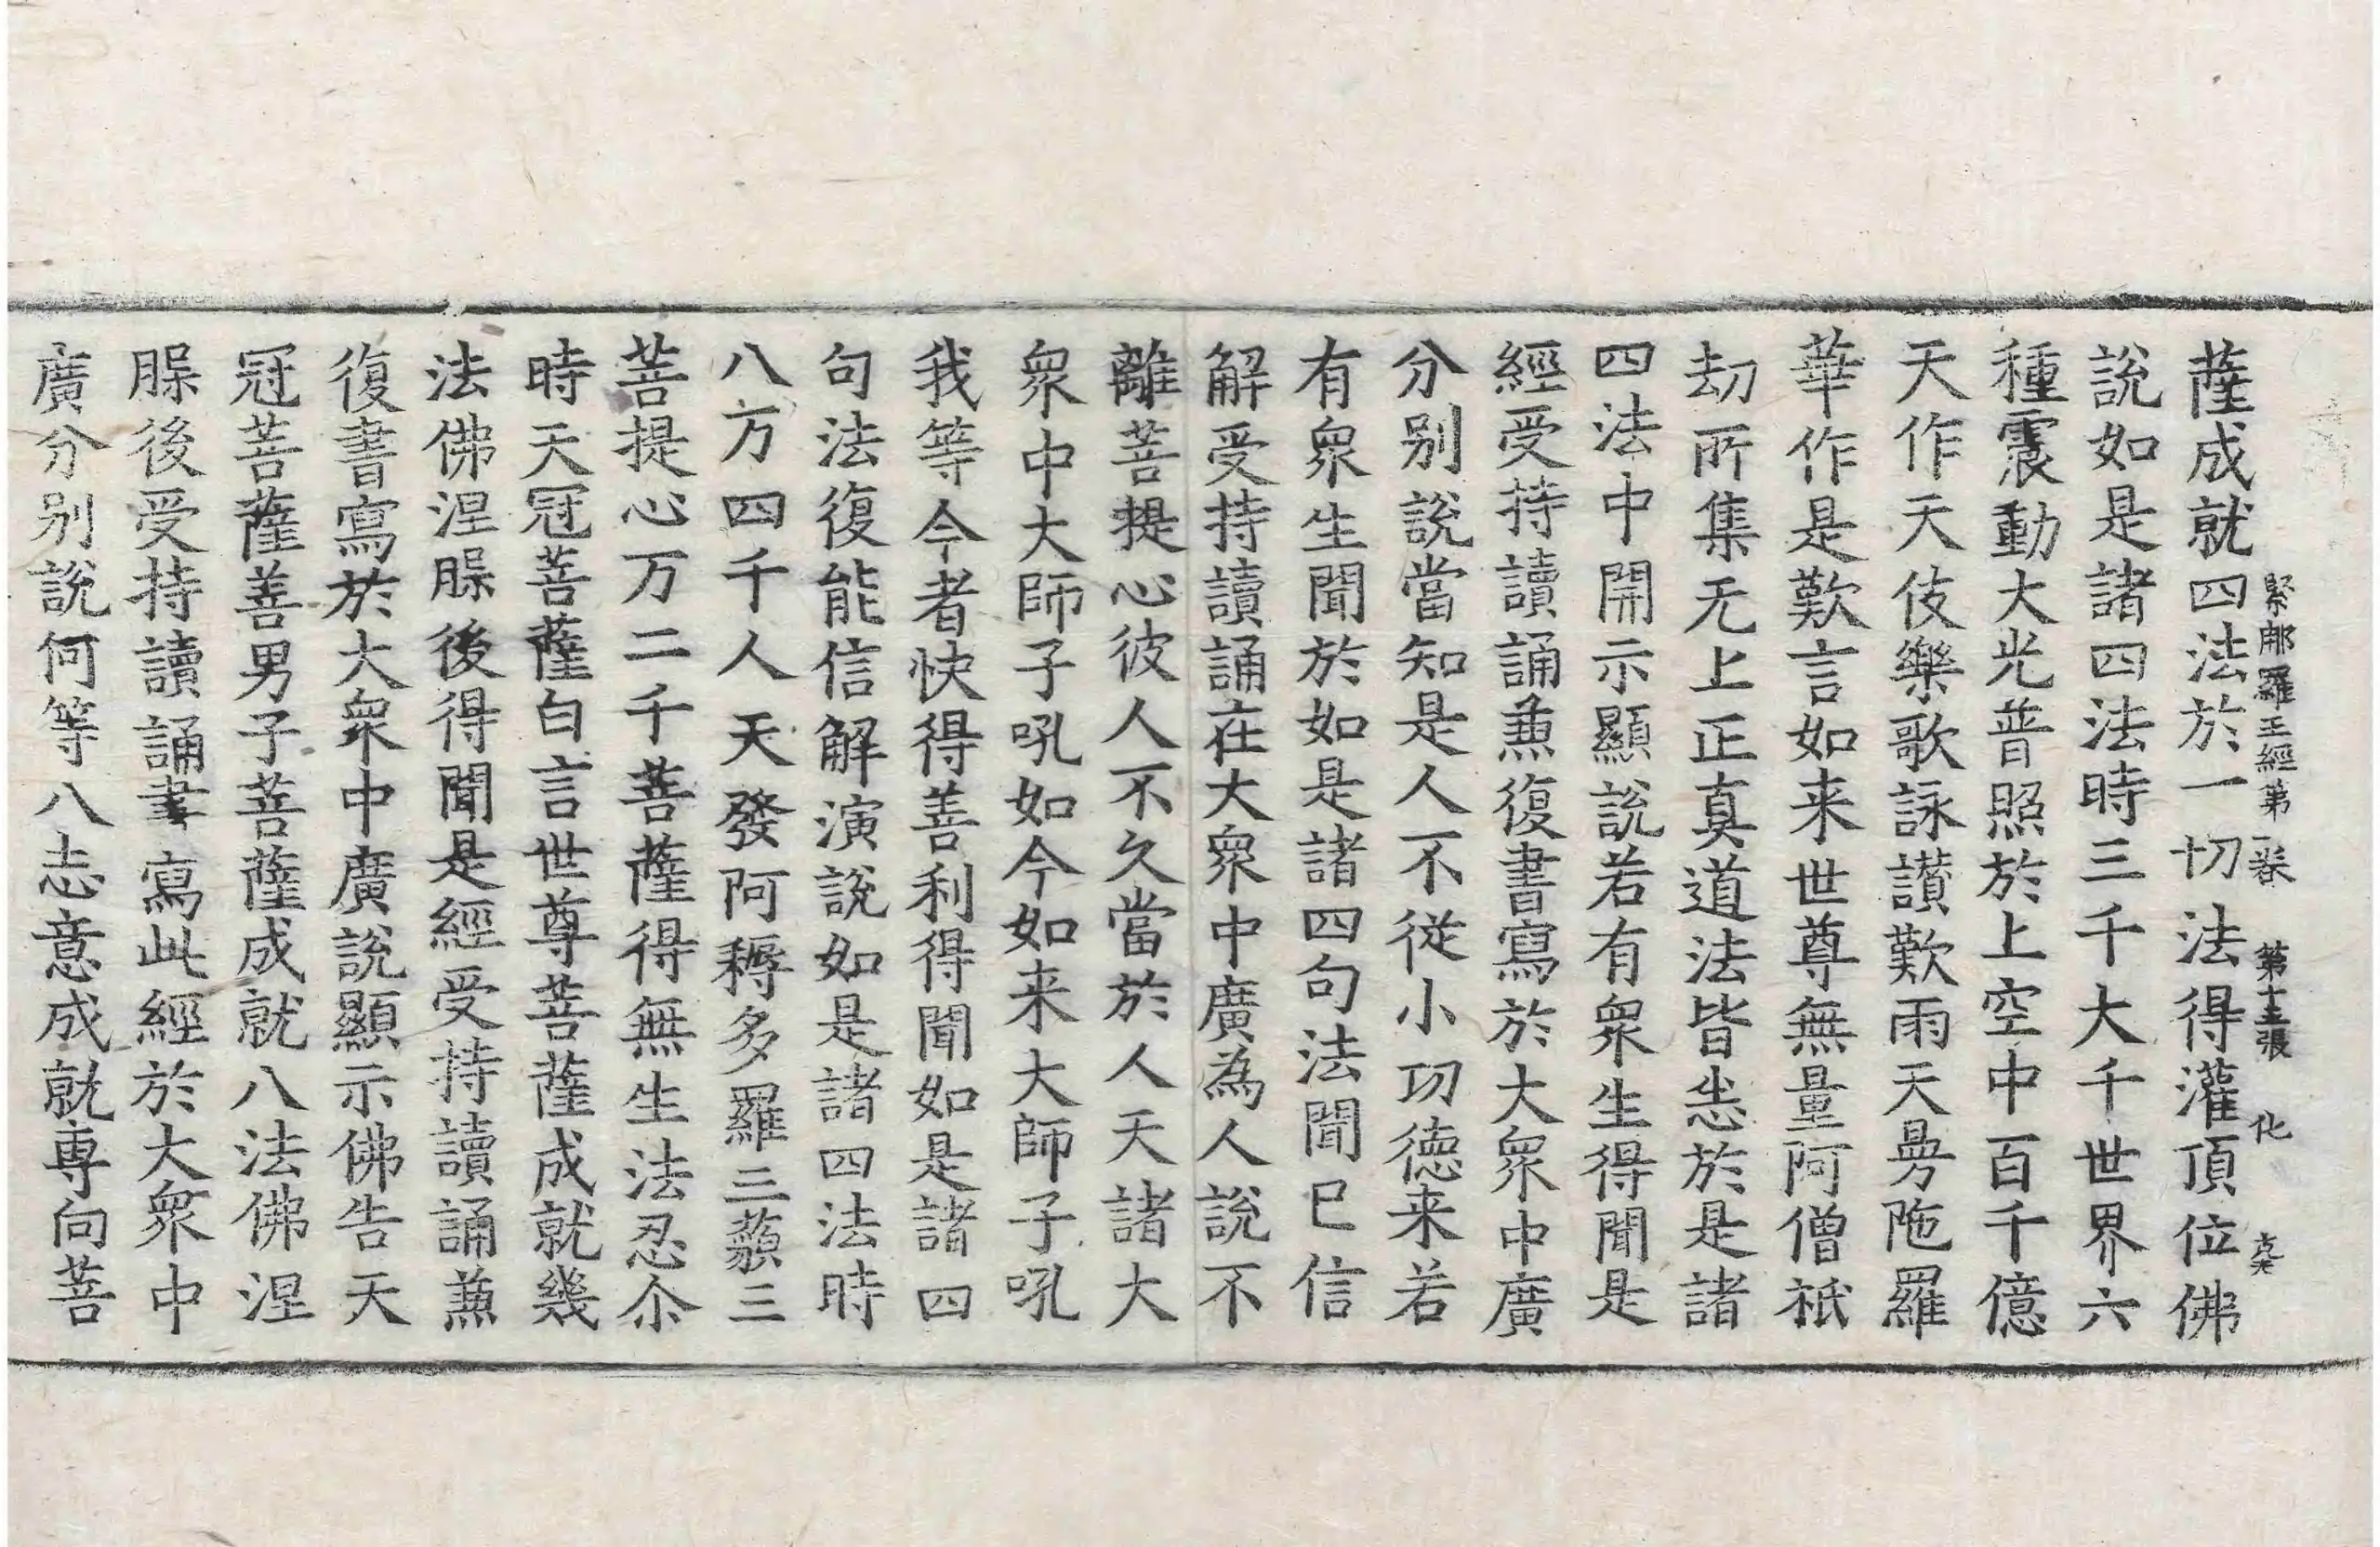 緊那羅王經第一卷 第十五張 化
薩成就四法於一切法得灌頂位佛
說如是諸四法時三千大千世界六
種震動大光普照於上空中百千億
天作天伎樂歌詠讃歎雨天曼陁羅
華作是歎言如来世尊無量阿僧祇
劫所集无上正真道法皆悉於是諸
四法中開示顯說若有眾生得聞是
經受持讀誦兼復書寫於大眾中廣
分別說當知是人不從小功德来若
有眾生聞於如是諸四句法聞已信
解受持讀誦在大眾中廣為人說不
離菩提心彼人不久當於人天諸大
眾中大師子吼如今如来大師子吼
我等今者快得善利得聞如是諸四
句法復能信解演說如是諸四法時
八方四千人天發阿耨多羅三藐三
菩提心万二千菩薩得無生法忍尒
時天冠菩薩白言世尊菩薩成就幾
法佛涅槃後得聞是經受持讀誦兼
復書寫於大眾中廣說顯示佛告天
冠菩薩善男子菩薩成就八法佛涅
槃後受持讀誦書寫此經於大眾中
廣分別說何等八志意成就專向菩